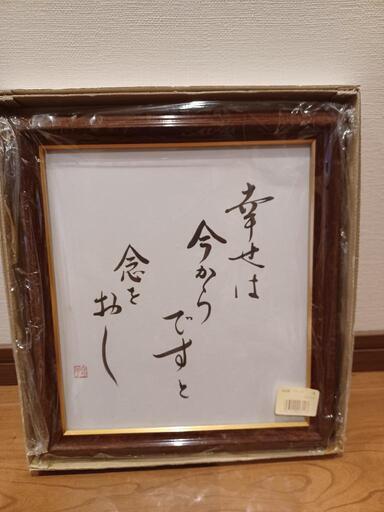 幸せは
今から
ですと
念を
おし